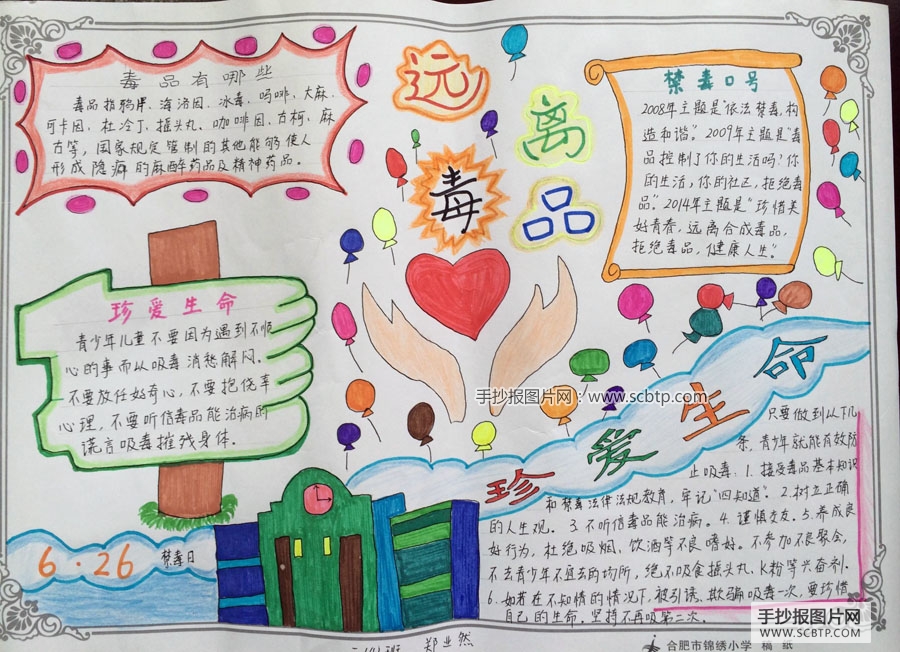 毒品有哪些
毒品指鸦片、海洛因、冰毒、吗啡、大麻、
可卡因、杜冷丁、摇头丸、咖啡因、古柯、麻
古等,国家规定管制的其他能够使人
形成隐癖的麻醉药品及精神药品。
远
离
毒
品
禁毒口号
2008年主题是"依法禁毒,构
造和谐"。2009年主题是"毒
品控制了你的生活吗?你
的生活,你的社区,拒绝毒
品"。2014年主题是"珍惜美
好青春,远离合成毒品,
拒绝毒品,健康人生"。
珍爱生命
青少年儿童不要因为遇到不顺
心的事而从吸毒消愁解闷。
不要放任好奇心,不要抱侥幸
心理,不要听信毒品能治病的
谎言吸毒摧残身体。
手抄报图片网:www.scbtp.com
珍爱生命
只要做到以下几
条,青少年就能有效防
止吸毒:1.接受毒品基本知识
和禁毒法律法规教育,牢记"四知道"。2.树立正确
的人生观。3.不听信毒品能治病。4.谨慎交友。5.养成良
好行为,杜绝吸烟、饮酒等不良嗜好。不参加不良聚会,
不去青少年不宜去的场所,绝不吸食摇头丸、K粉等兴奋剂。
6.如若在不知情的情况下,被引诱、欺骗吸毒一次,要珍惜
自己的生命,坚持不再吸第二次。
6·26
禁毒日
郑业然
合肥市锦绣小学 稿 纸
手抄报图片网
WWW.SCBTP.COM